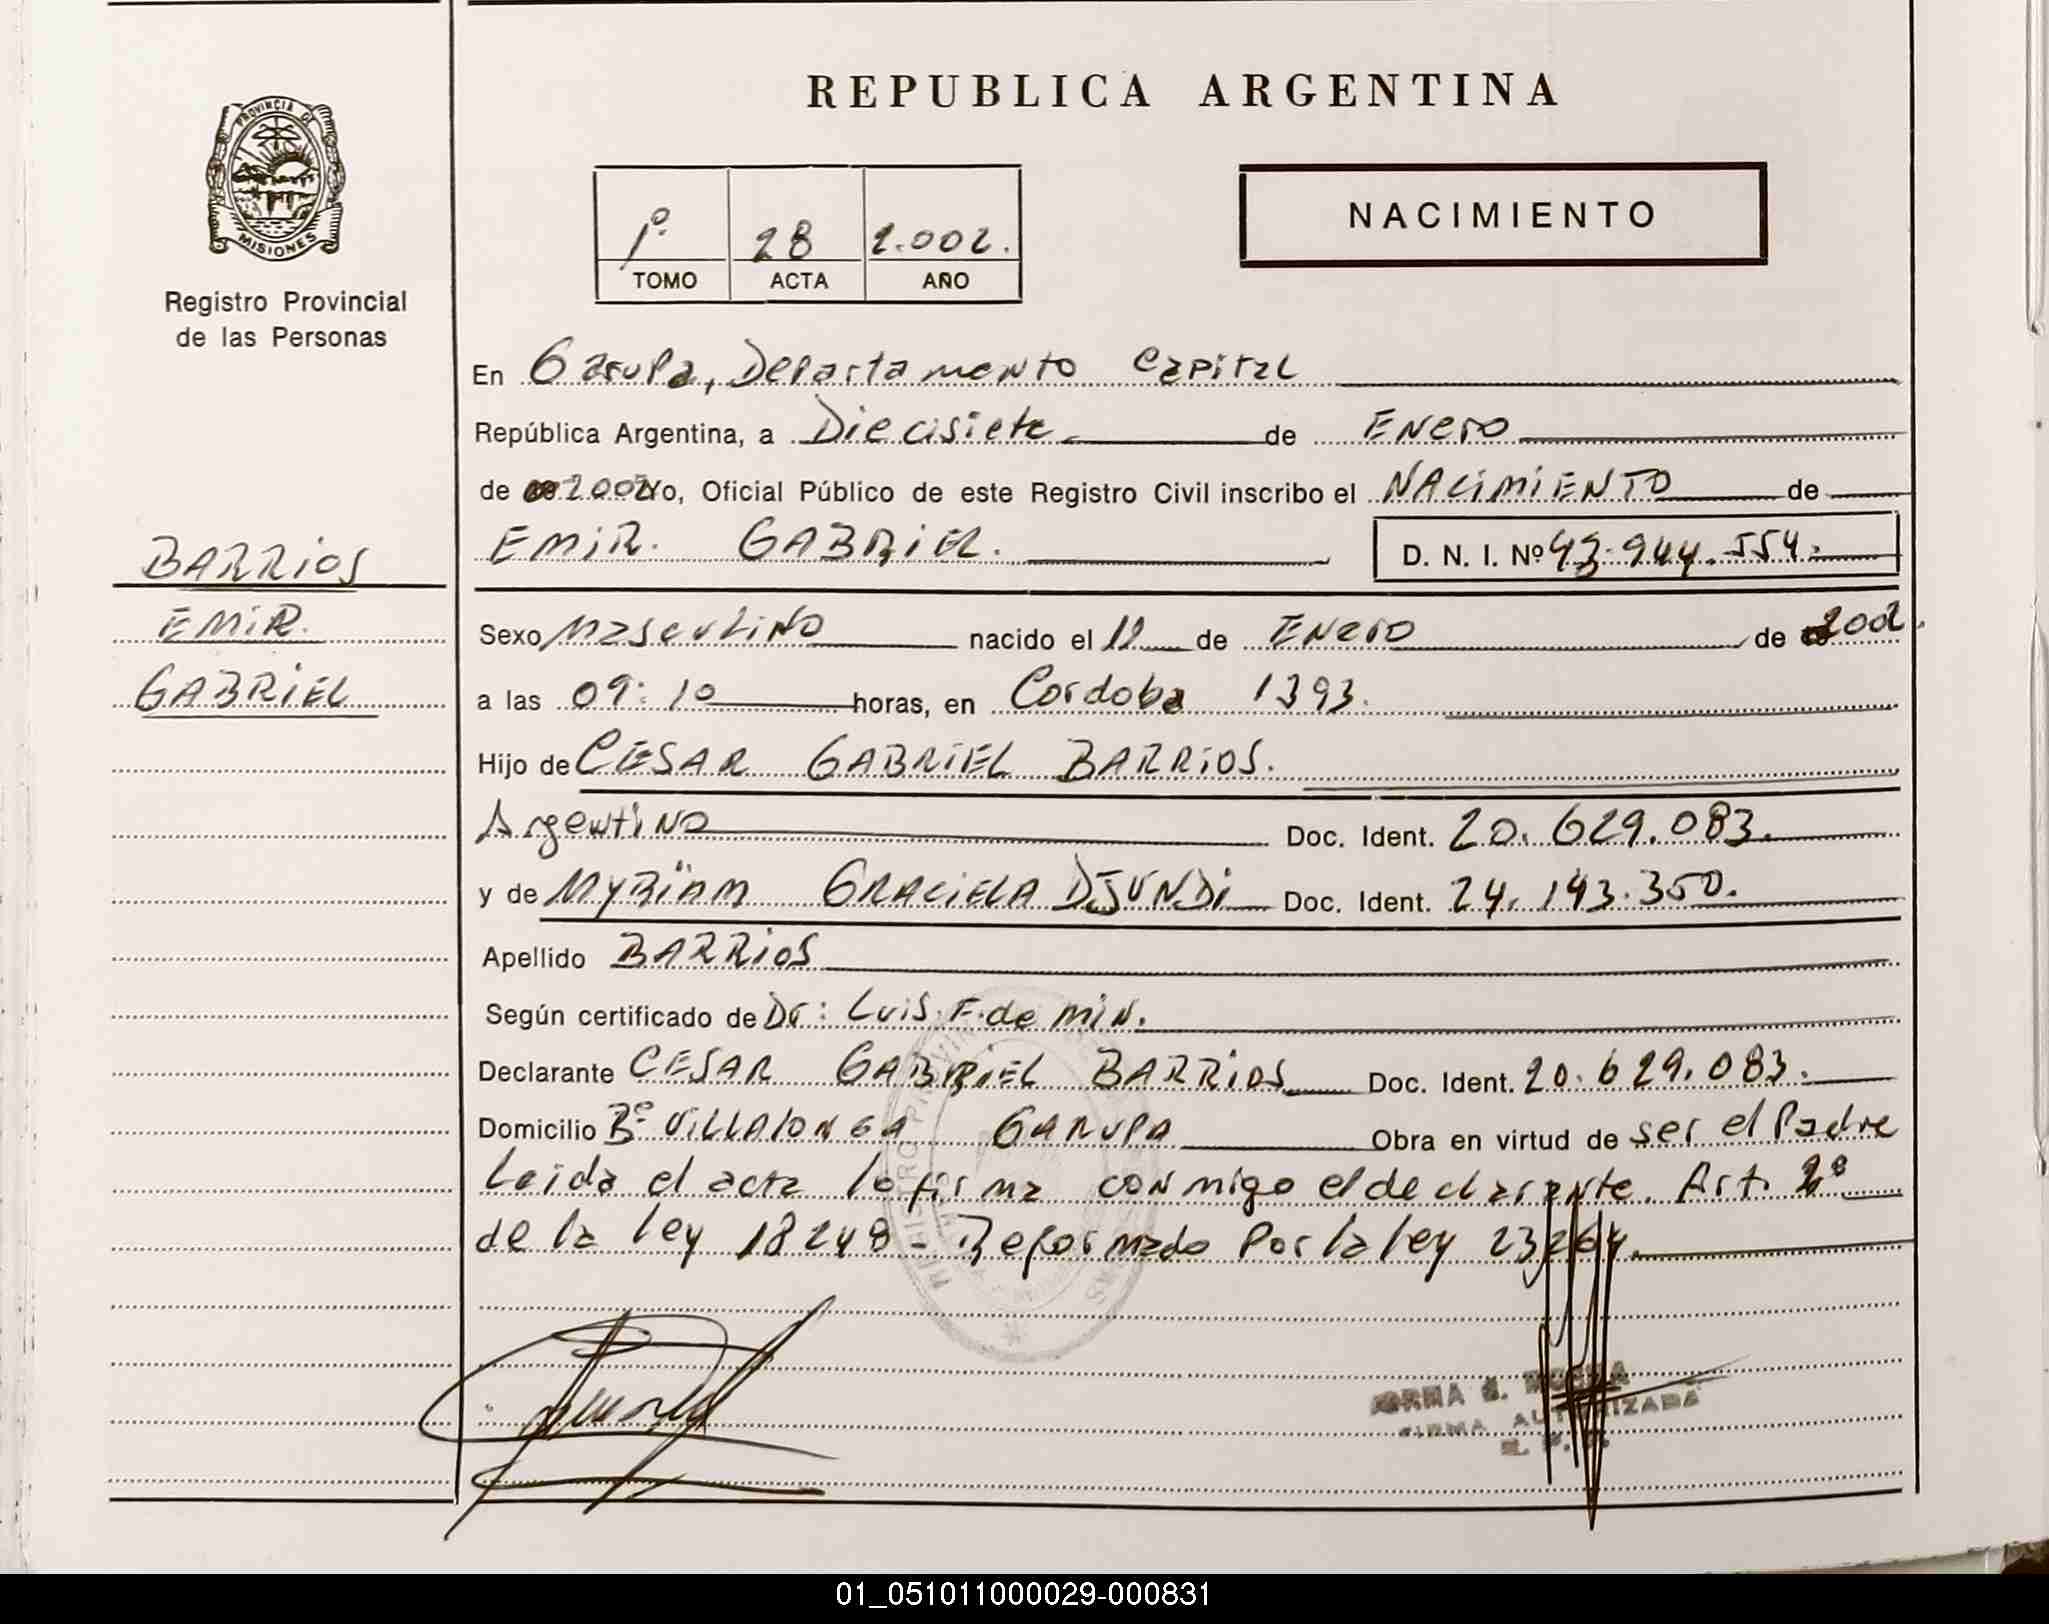 REPUBLICA ARGENTINA
PROVINCIA DE
MISIONES
Registro Provincial
de las Personas
1º 28 2.002.
TOMO ACTA AÑO
NACIMIENTO
En Garupa, Departamento Capital
República Argentina, a Diecisiete de Enero
de 2002 Yo, Oficial Público de este Registro Civil inscribo el NACIMIENTO de
EMIR. GABRIEL. D. N. I. Nº 43.944.554.
BARRIOS
EMIR.
GABRIEL
Sexo Masculino nacido el 12 de Enero de 2002.
a las 09:10 horas, en Cordoba 1393.
Hijo de CESAR GABRIEL BARRIOS.
Argentino Doc. Ident. 20.629.083.
y de MYRIAM GRACIELA DJUNDI Doc. Ident. 24.143.350.
Apellido BARRIOS
Según certificado de Dr: Luis F. de Min.
Declarante CESAR GABRIEL BARRIOS Doc. Ident. 20.629.083.
Domicilio Bº VILLALONGA GARUPA Obra en virtud de ser el Padre
Leida el acta lo firma conmigo el declarante. Art. 2º
de la ley 18248 - Reformado Por la ley 23264.
FIRMA AUTORIZADA
01_051011000029-000831